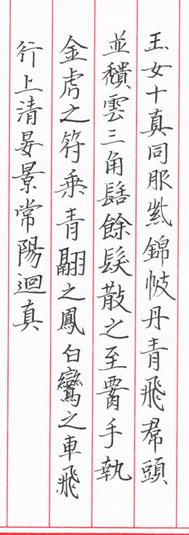 玉女十真同服紫錦帔丹青飛帬頭
並穨雲三角髻餘髮散之至胷手執
金虎之符乗青翮之鳳白鸞之車飛
行上清晏景常陽迴真